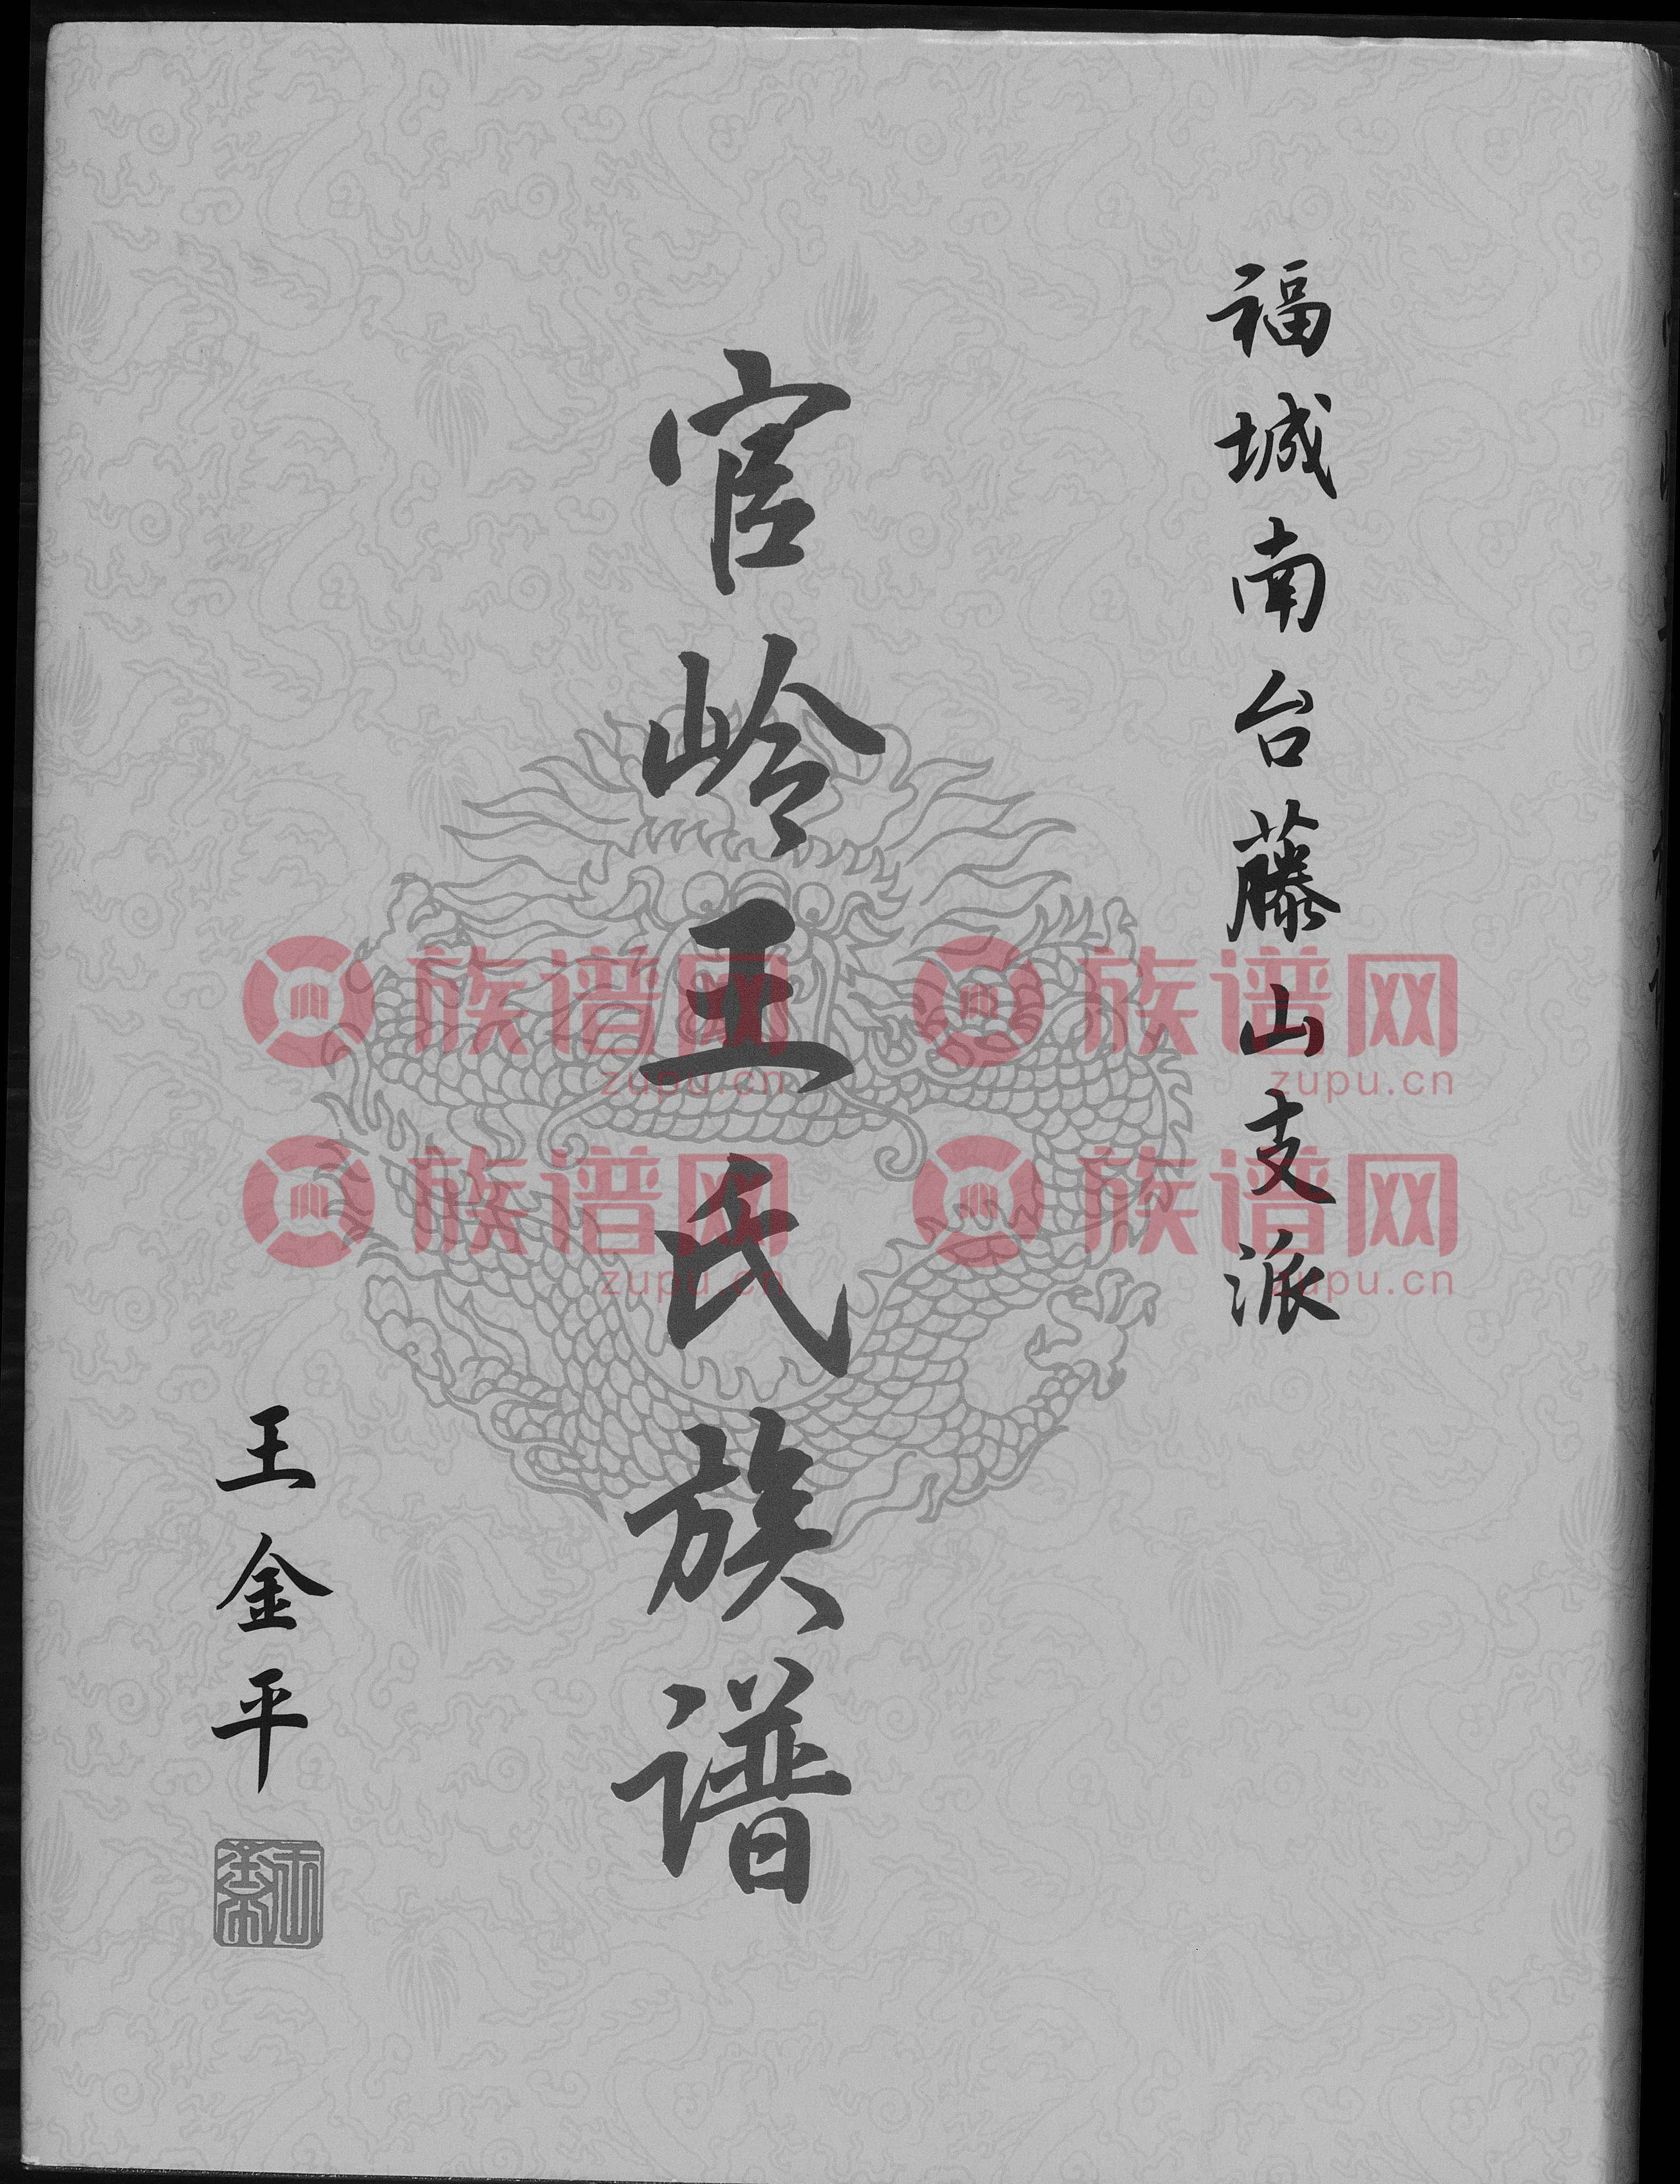 福城南台藤山支派
官岭王氏族谱
王金平
族谱网 族谱网
zupu.cn zupu.cn
族谱网 族谱网
zupu.cn zupu.cn